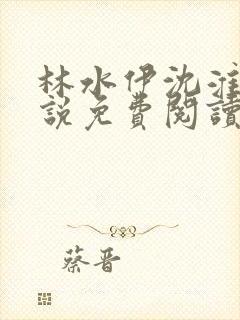 林水伊沈淮
說免費閱讀
蔡晋